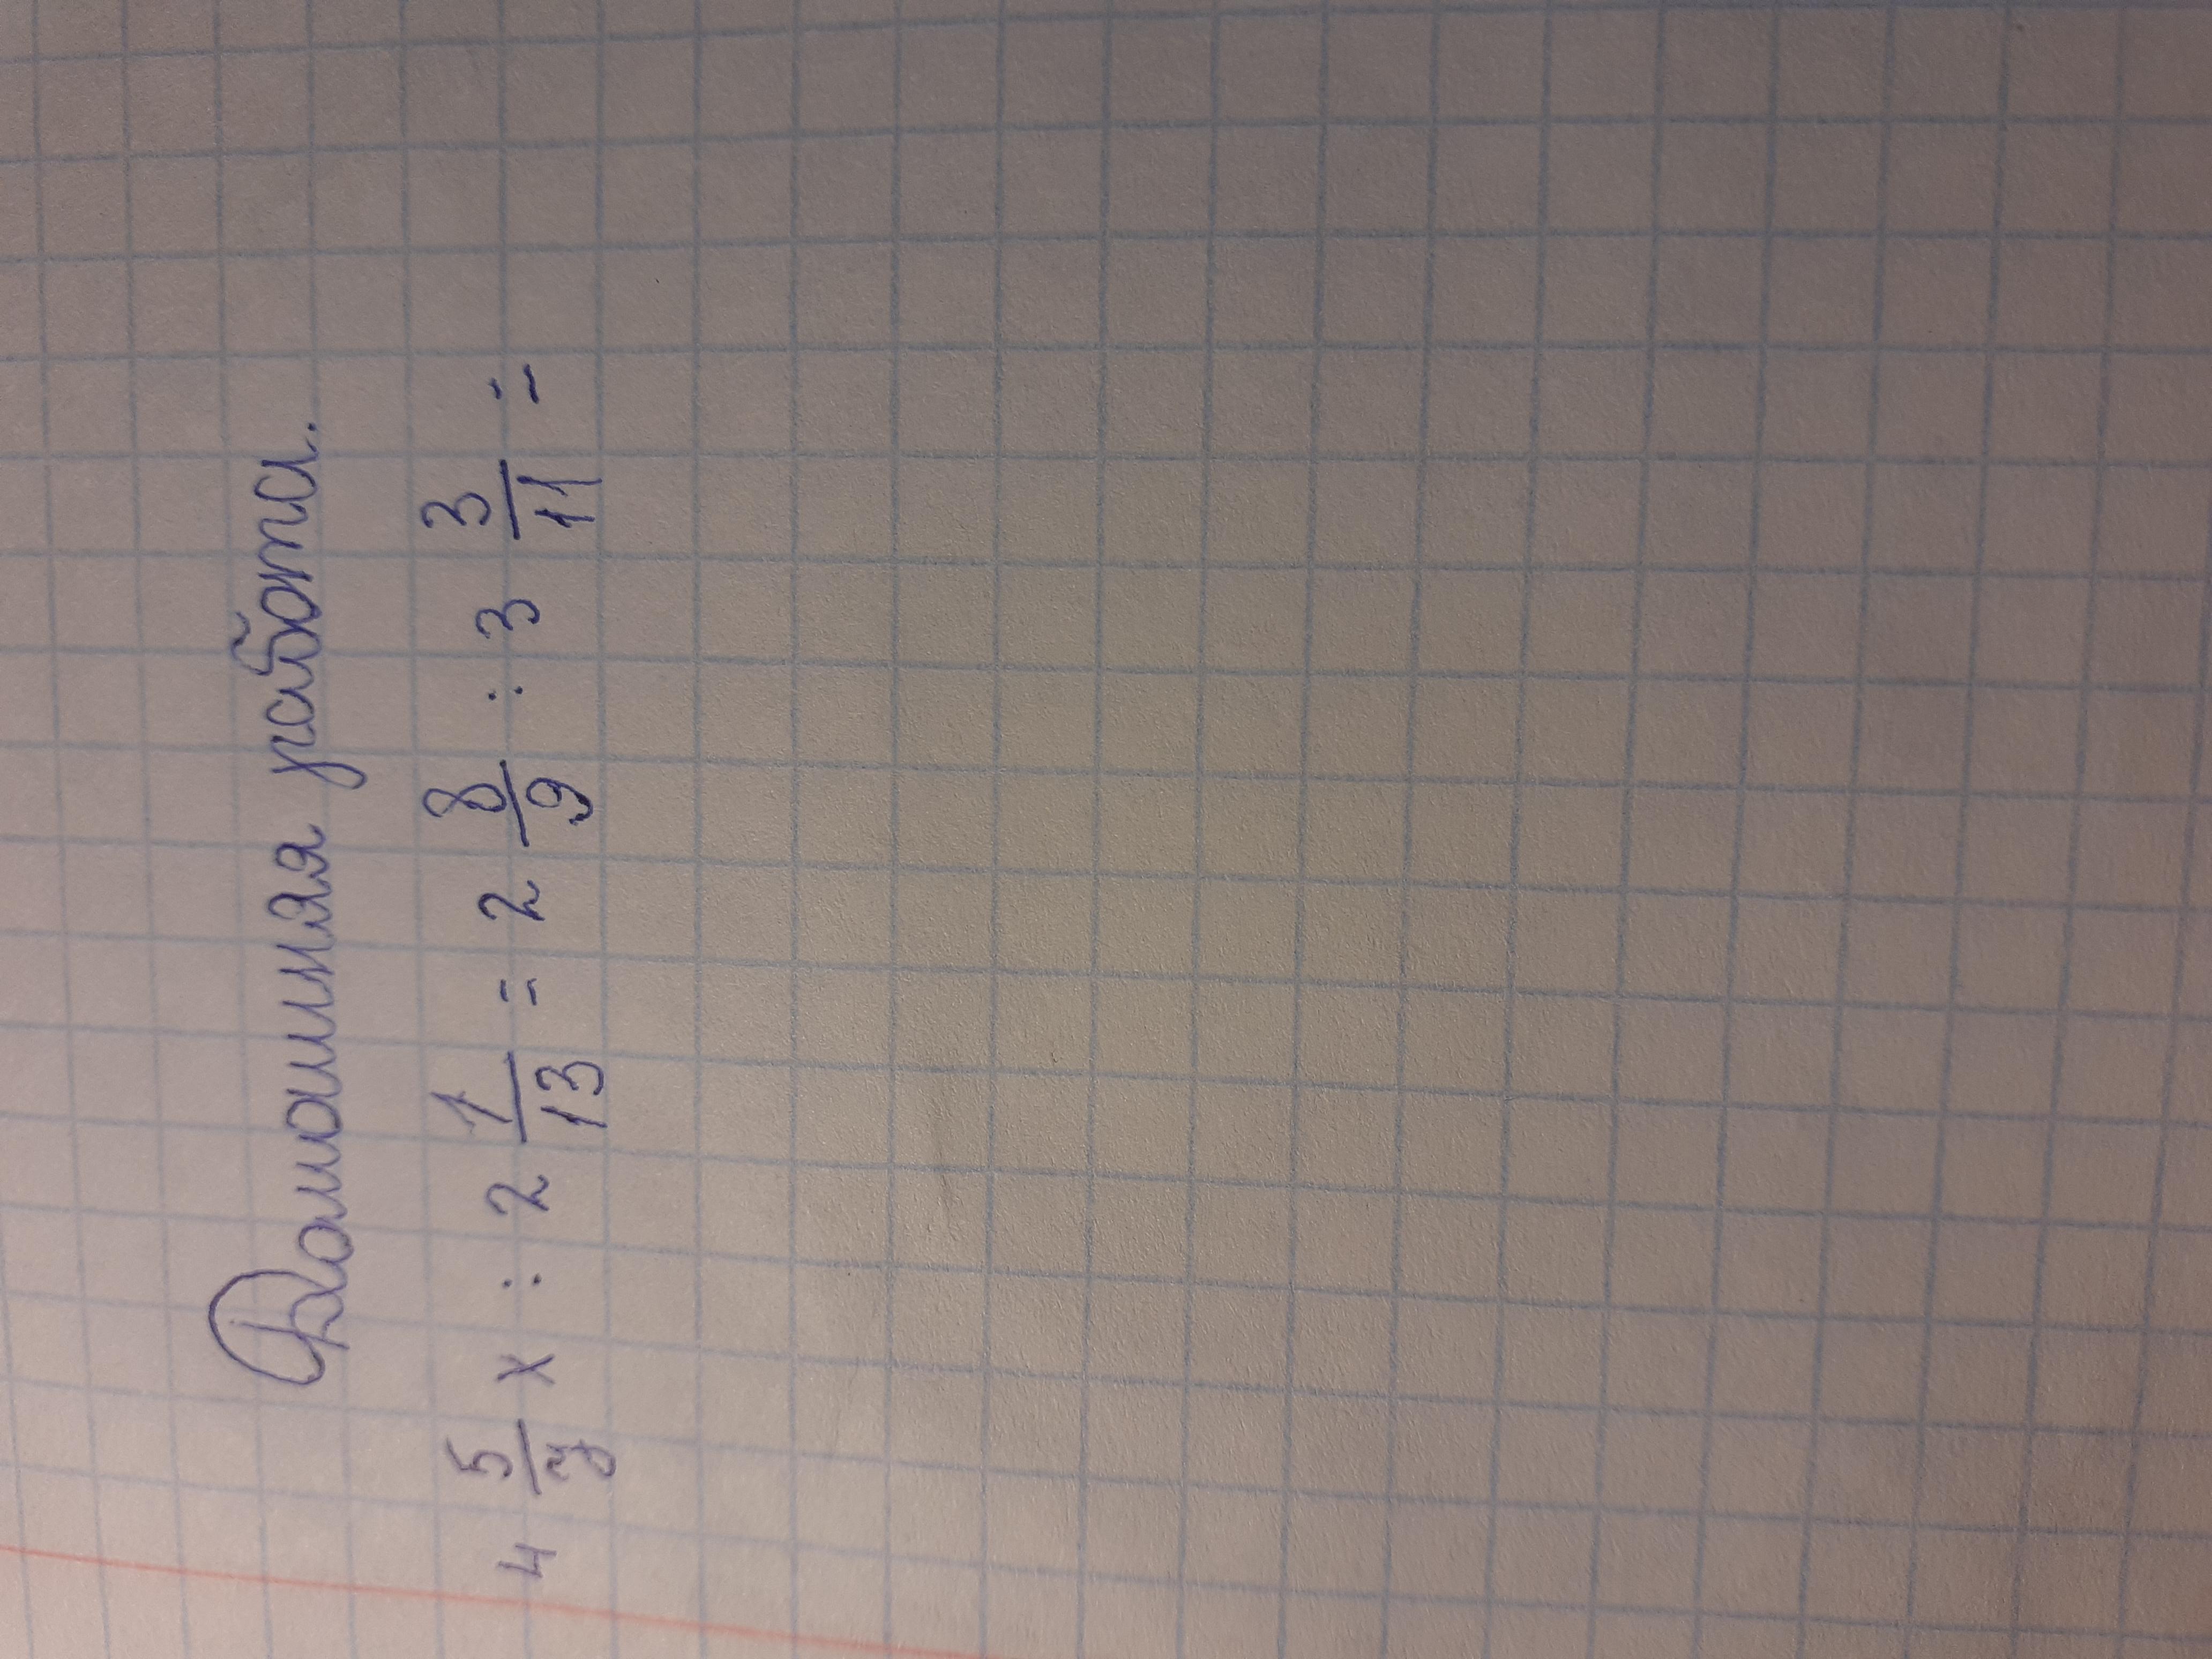 Домашняя работа.
4 5/7 x : 2 1/13 = 2 8/9 : 3 3/11 =